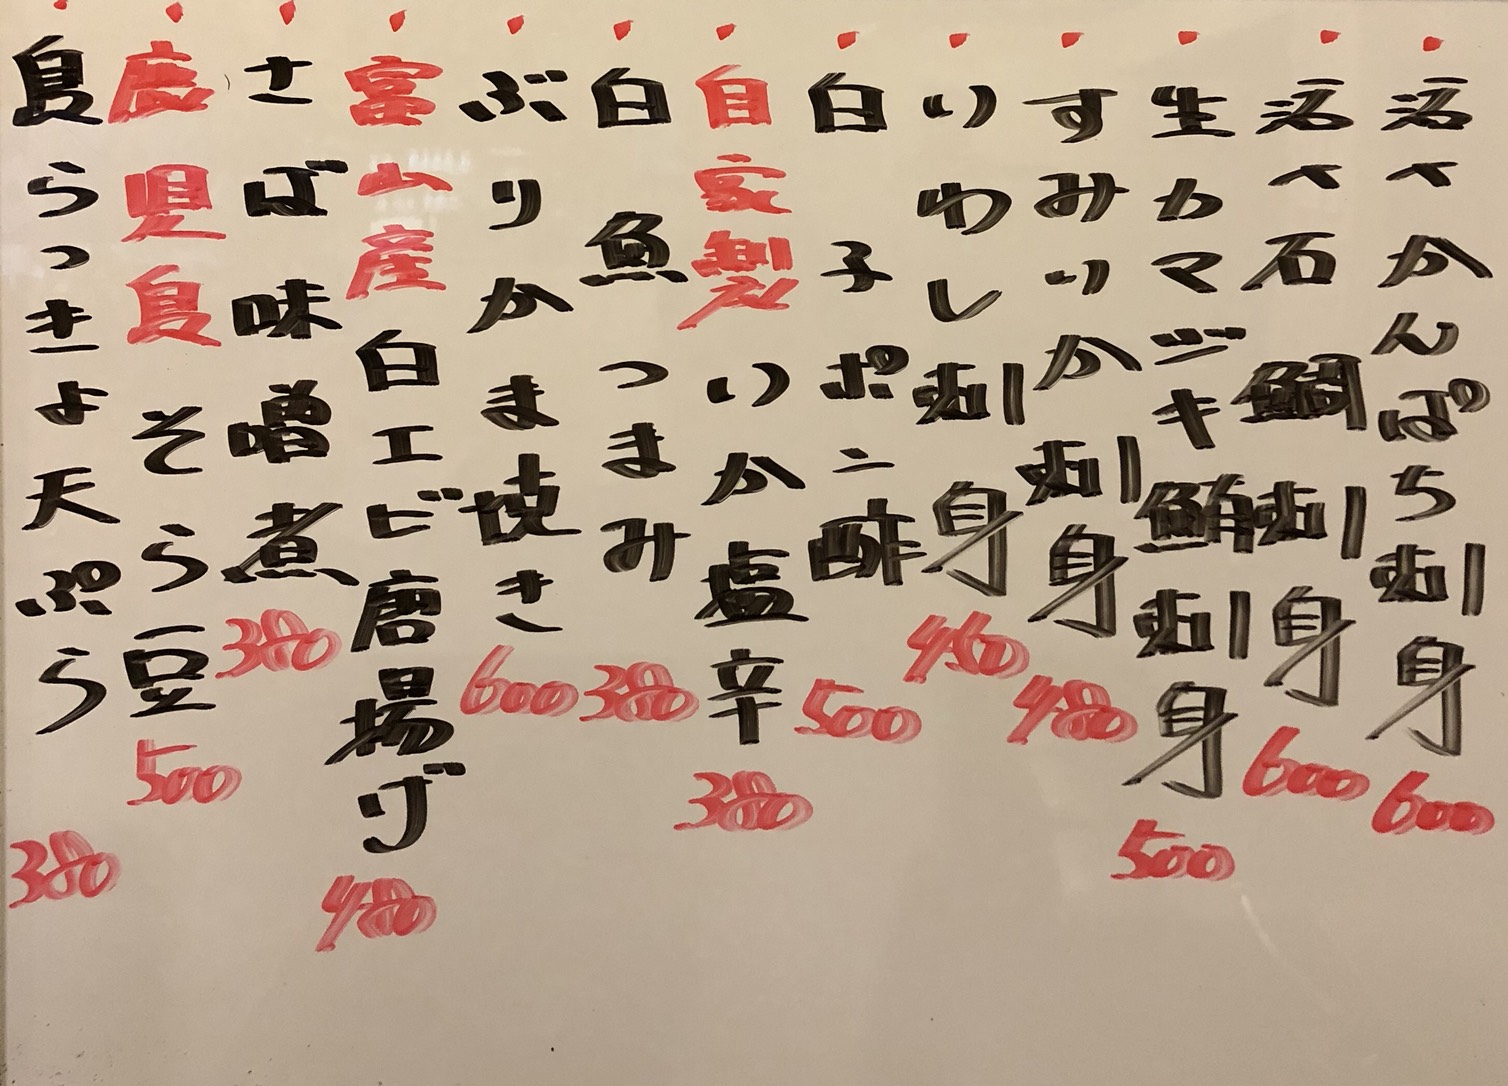 活〆かんぱち刺身 600
活〆石鯛刺身 600
生カマジキ鮪刺身 500
すみいか刺身 480
いわし刺身 460
白子ポン酢 500
自家製いか塩辛 380
白魚つまみ 380
ぶりかま焼き 600
富山産白エビ唐揚げ 480
さば味噌煮 380
鹿児島そら豆 500
島らっきょ天ぷら 380